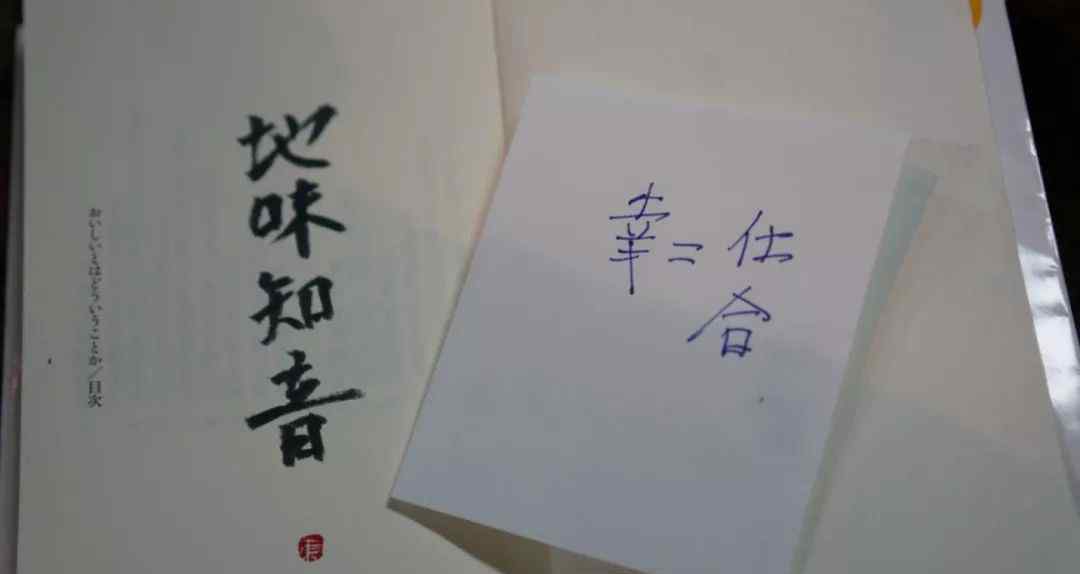 地味知音
おいしいとはどういうことか／目次
幸=仕合